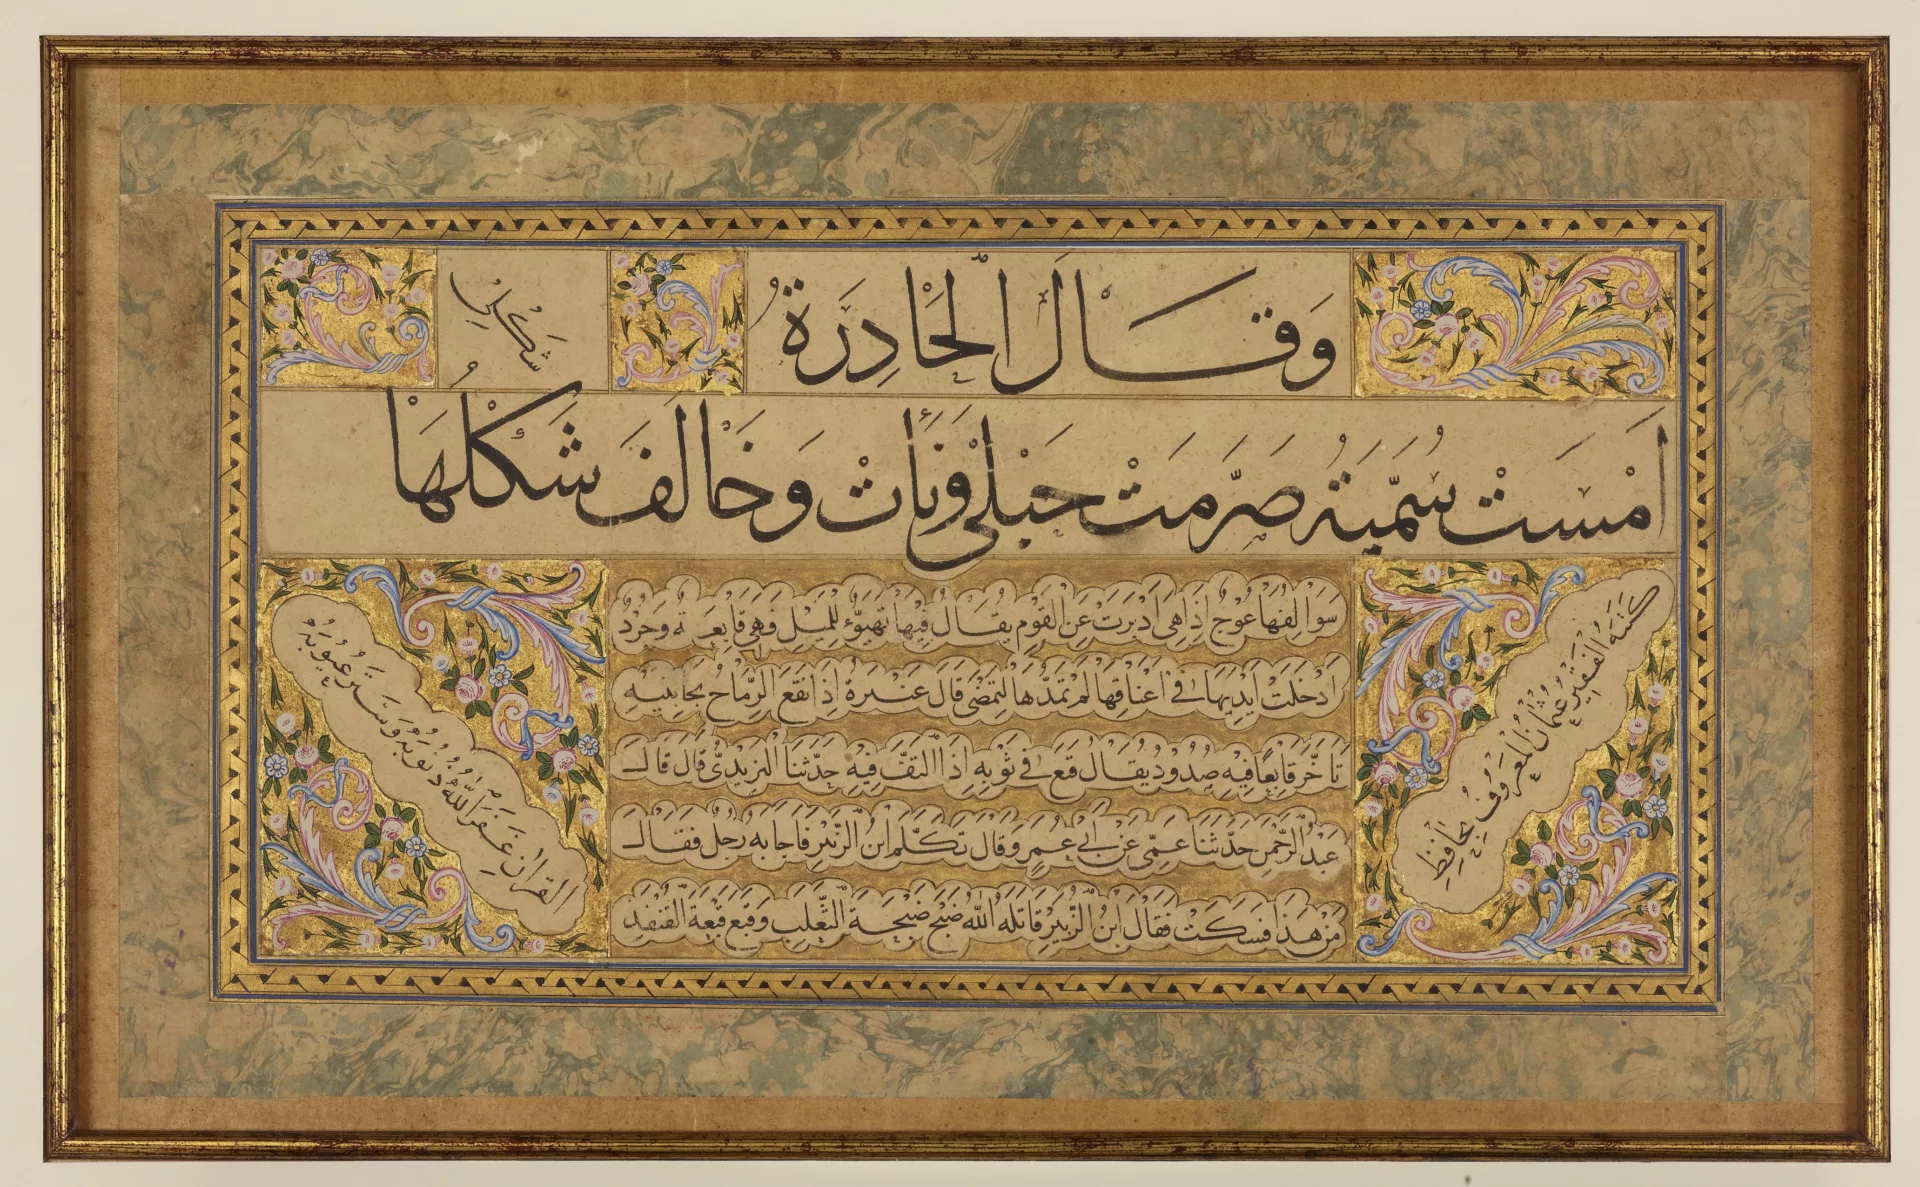 وَقَالَ الْحَادِرَةُ
شَكْلِي
اَمْسَتْ سُمَيَّةُ صَرَّمَتْ حَبْلِي وَنَأَتْ وَخَالَفَ شَكْلُهَا
سَوَالِفُهَا عُوجٌ اِذَا هِيَ اَدْبَرَتْ عَنِ الْقَوْمِ يُقَالُ فِيهَا تَهَيُّؤٌ لِلْمَيْلِ فَهِيَ قَابِعَةٌ وَجُرْدٌ
اَدْخَلَتْ اَيْدِيَهَا فِي اَعْنَاقِهَا لَمْ تَمُدَّهَا لِتَمْضِيَ قَالَ عَنْتَرَةُ اِذَا نَقَعَ الرِّمَاحُ بِجَانِبَيْهِ
تَاَخَّرَ قَابِعًا فِيهِ صُدُودُ يُقَالُ قَبَعَ فِي ثَوْبِهِ اِذَا الْتَفَّ فِيهِ حَدَّثَنَا الْيَزِيدِيُّ قَالَ قَالَ
عَبْدُ الرَّحْمٰنِ حَدَّثَنَا عَمِّي عَنْ اَبِي عُمَرٍ وَقَالَ تَكَلَّمَ ابْنُ الزُّبَيْرِ فَاَجَابَهُ رَجُلٌ فَقَالَ
مَنْ هٰذَا فَسَكَتَ فَقَالَ ابْنُ الزُّبَيْرِ قَاتَلَهُ اللّٰهُ ضَبَحَ ضَبْحَةَ الثَّعْلَبِ وَقَبَعَ قَبْعَةَ الْقُنْفُذِ
كَتَبَهُ الْفَقِيرُ عُثْمَانُ الْمَعْرُوفُ بِحَافِظِ
الْقُرْاٰنِ غَفَرَ اللّٰهُ ذُنُوبَهُ وَسَتَرَ عُيُوبَهُ